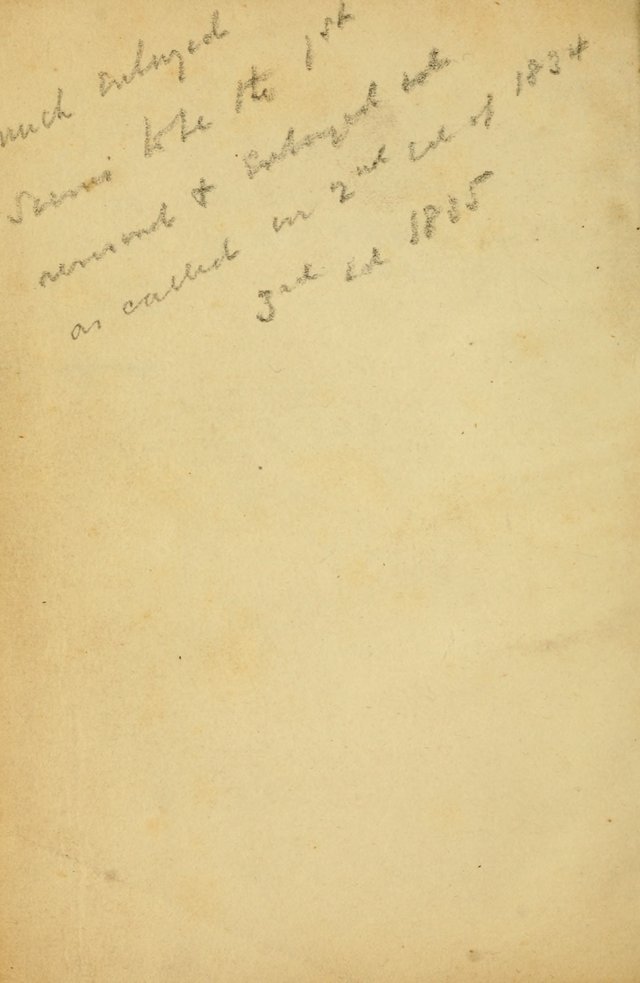 much Enlarged
Seems to be the 1st
revised & Enlarged ed
as called in 2nd ed of 1834
3rd Ed 1835